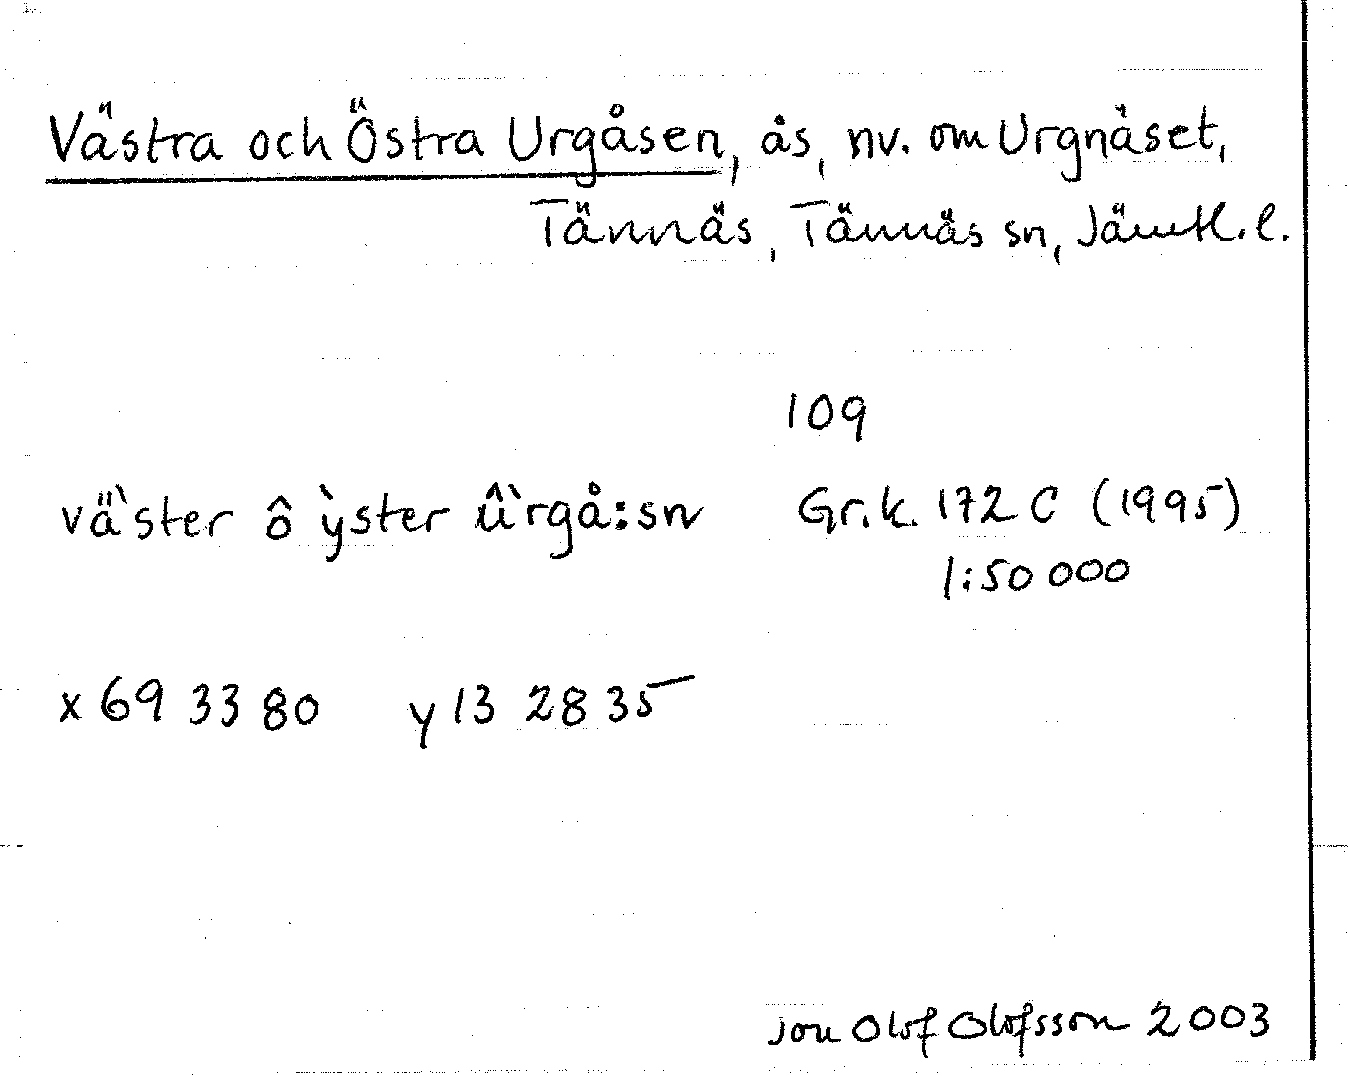 Västra och Östra Urgåsen, ås, nv. om Urgnäset,
Tännäs, Tännäs sn, Jämtl. l.
109
vä̀ster ô ỳster û̀rgå:sn Gr.k. 172 C (1995)
1:50 000
x 69 33 80 y 13 28 35
Jon Olof Olofsson 2003